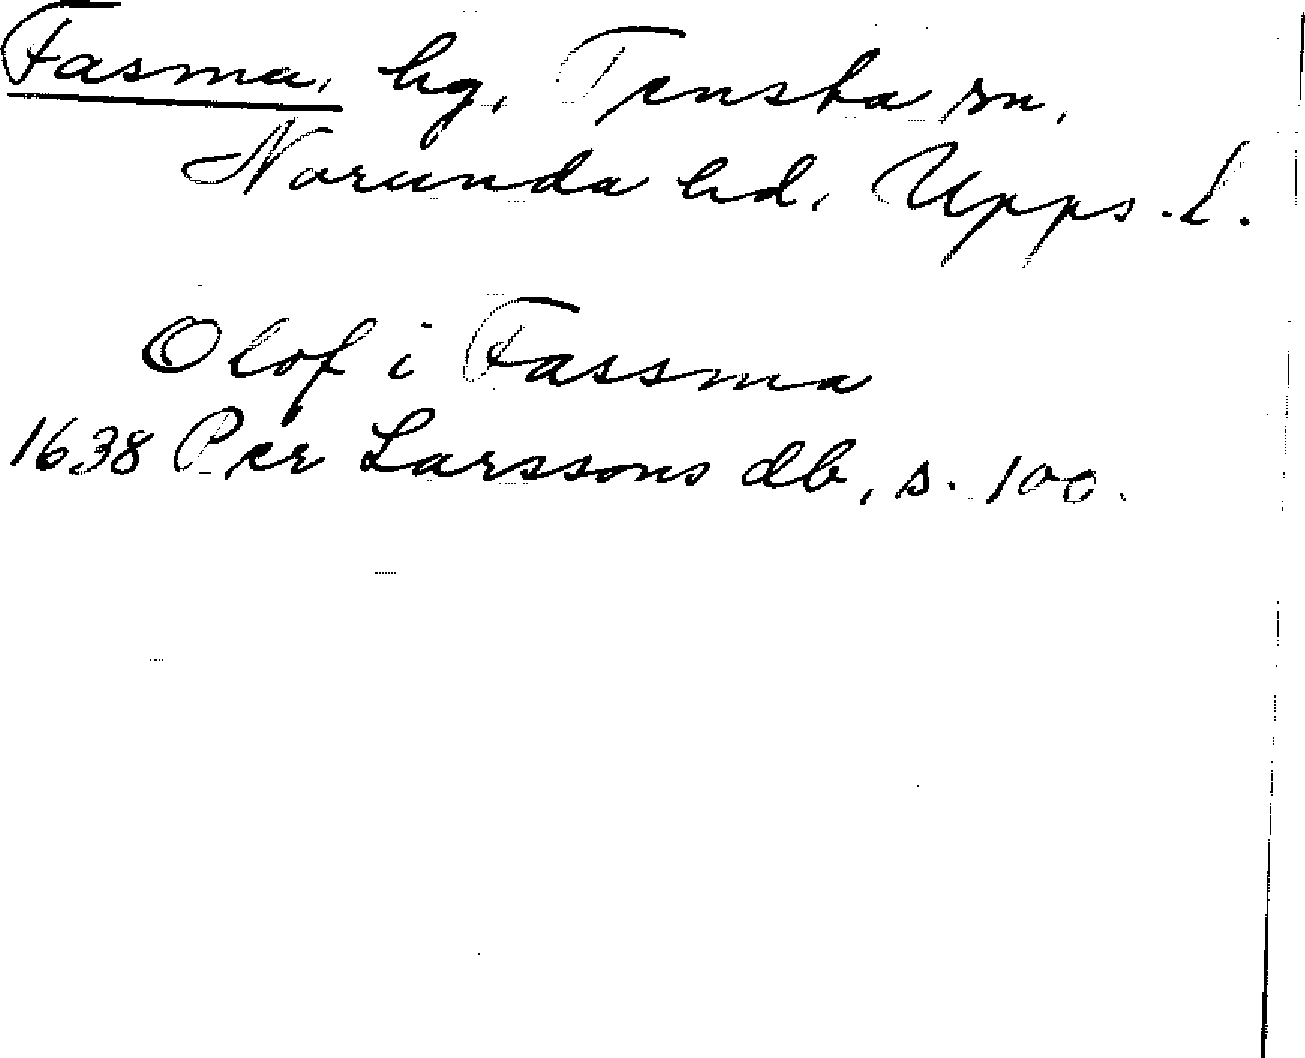 Fasma, hg, Tensta sn,
Norunda hd, Upps. l.
Olof i Fassma
1638 Per Larssons db, s. 100.